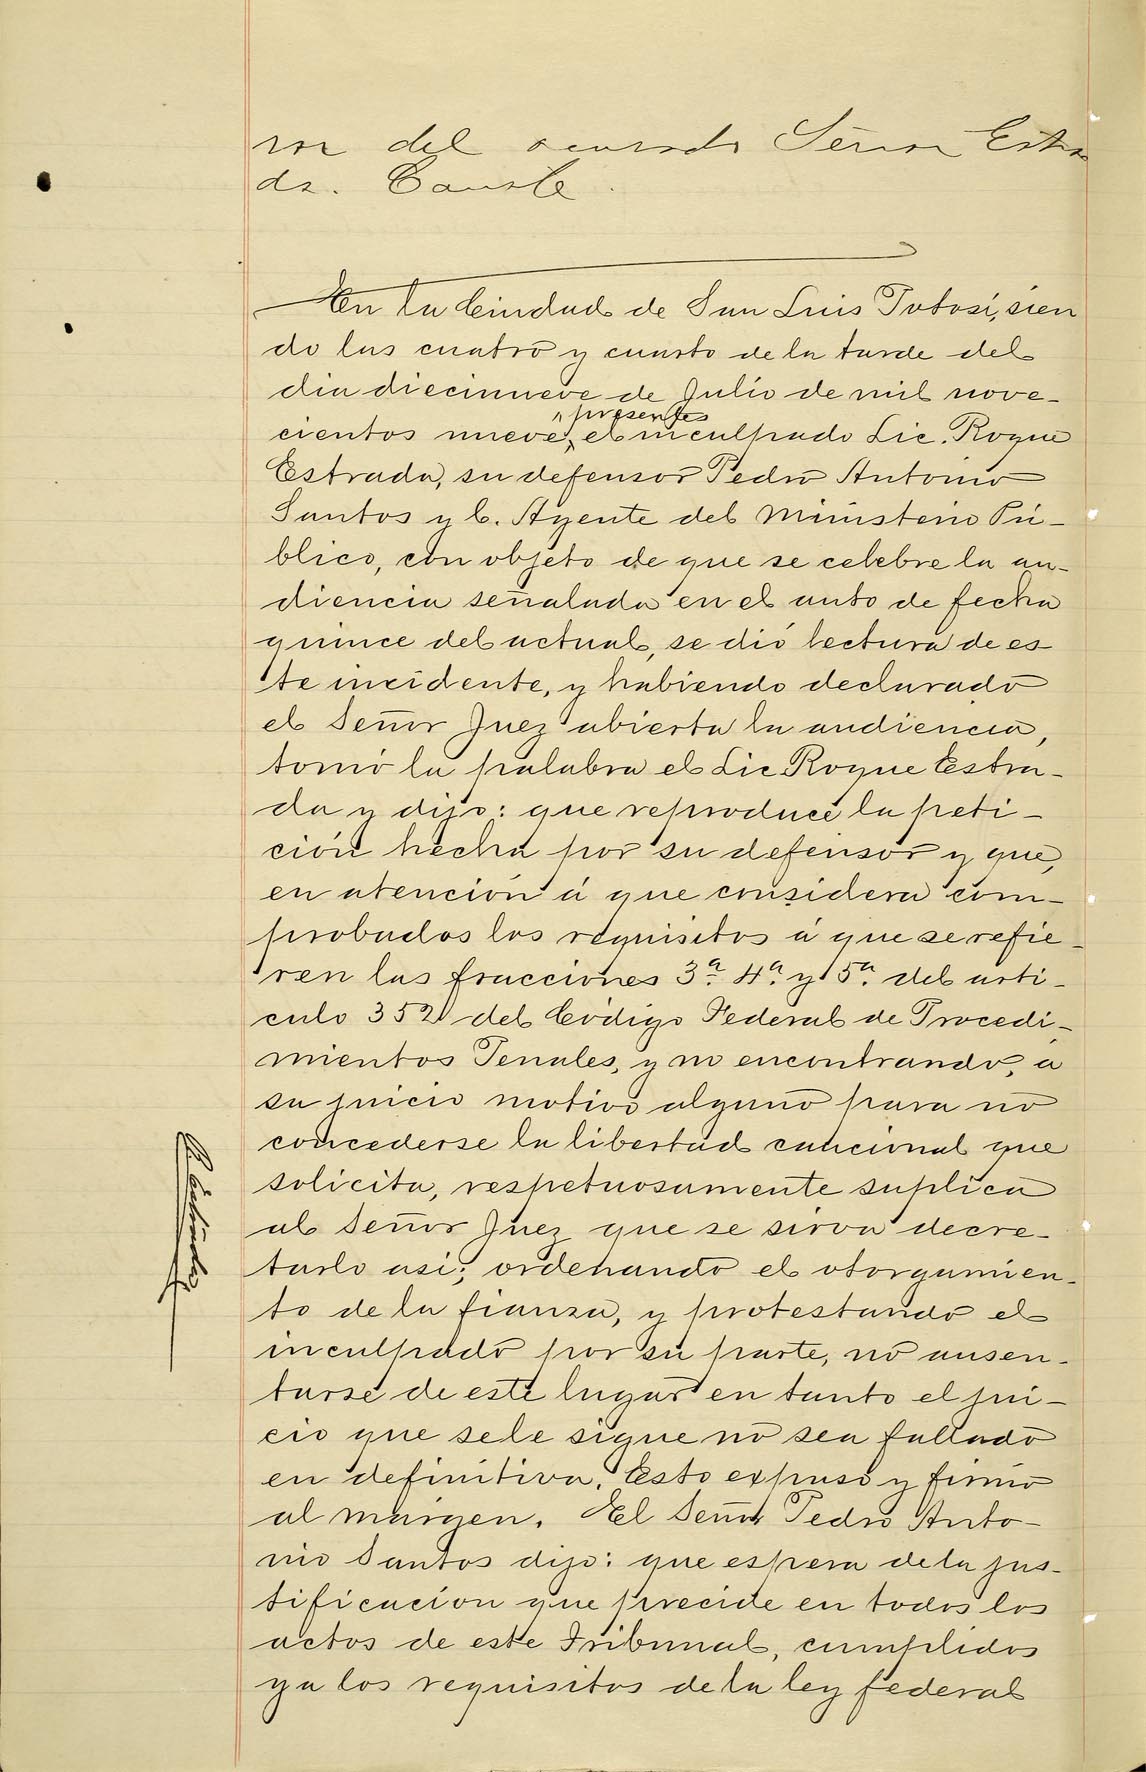 sor del acusado Señor Estra
da. Conste.
En la Ciudad de San Luis Potosí, sien
do las cuatro y cuarto de la tarde del
dia diecinueve de Julio de mil nove-
presentes
cientos nueve, el inculpado Lic. Roque
Estrada, su defensor Pedro Antonio
Santos y C. Agente del Ministerio Pú-
blico, con objeto de que se celebre la au-
diencia señalada en el auto de fecha
quince del actual, se dió lectura de es-
te incidente, y habiendo declarado
el Señor Juez abierta la audiencia,
tomó la palabra el Lic. Roque Estra-
da y dijo: que reproduce la peti-
ción hecha por su defensor y que,
en atención á que considera com-
probados los requisitos á que se refie-
ren las fracciones 3ª. 4ª. y 5ª. del artí-
culo 352 del Código Federal de Procedi-
mientos Penales, y no encontrando, á
su juicio motivo alguno para no
concederse la libertad caucional que
solicita, respetuosamente suplica
al Señor Juez que se sirva decre-
tarlo así; ordenando el otorgamien-
to de la fianza, y protestando el
inculpado por su parte, no ausen-
tarse de este lugar en tanto el jui-
cio que se le sigue no sea fallado
en definitiva. Esto expuso y firmó
al márgen. El Señor Pedro Anto-
nio Santos dijo: que espera de la jus-
tificación que precide en todos los
actos de este Tribunal, cumplidos
ya los requisitos de la ley federal
R. Estrada